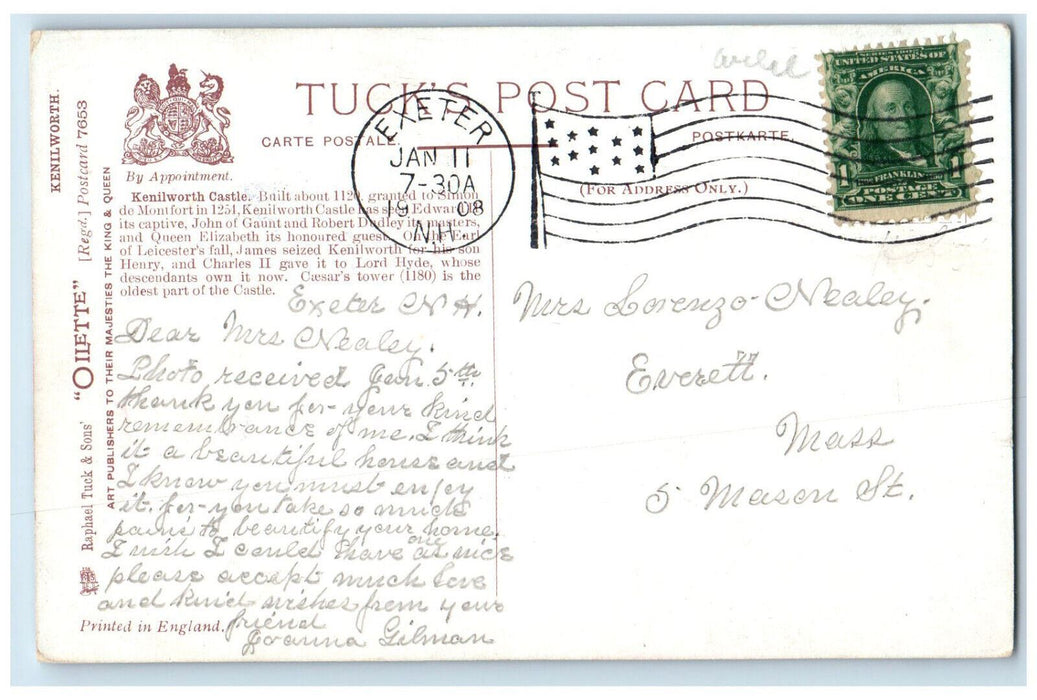 TUCK'S POST CARD
CARTE POSTALE.
POSTKARTE
(FOR ADDRESS ONLY.)
By Appointment.
Kenilworth Castle. Built about 1120, granted to Simon
de Montfort in 1251, Kenilworth Castle has seen Edward II
its captive, John of Gaunt and Robert Dudley its masters,
and Queen Elizabeth its honoured guest. On the Earl
of Leicester's fall, James seized Kenilworth for his son
Henry, and Charles II gave it to Lord Hyde, whose
descendants own it now. Cæsar's tower (1180) is the
oldest part of the Castle.
KENILWORTH.
[Regd.] Postcard 7653
"OILETTE"
Raphael Tuck & Sons'
ART PUBLISHERS TO THEIR MAJESTIES THE KING & QUEEN
Printed in England.
EXETER
JAN 11
7-30A
9 08
N.H.
SERIES 1902
UNITED STATES OF
AMERICA
FRANKLIN
1 POSTAGE 1
ONE CENT
Exeter N H.
Dear Mrs Nealey.
Photo received Jan 5th.
thank you for your kind
remembrance of me. I think
it a beautiful house and
I know you must enjoy
it. for you take so much
pains to beautify your home.
I wish I could have one as nice
please accept much love
and kind wishes from your
friend
Joanna Gilman
Mrs Lorenzo Nealey.
Everett.
Mass
5 Mason St.